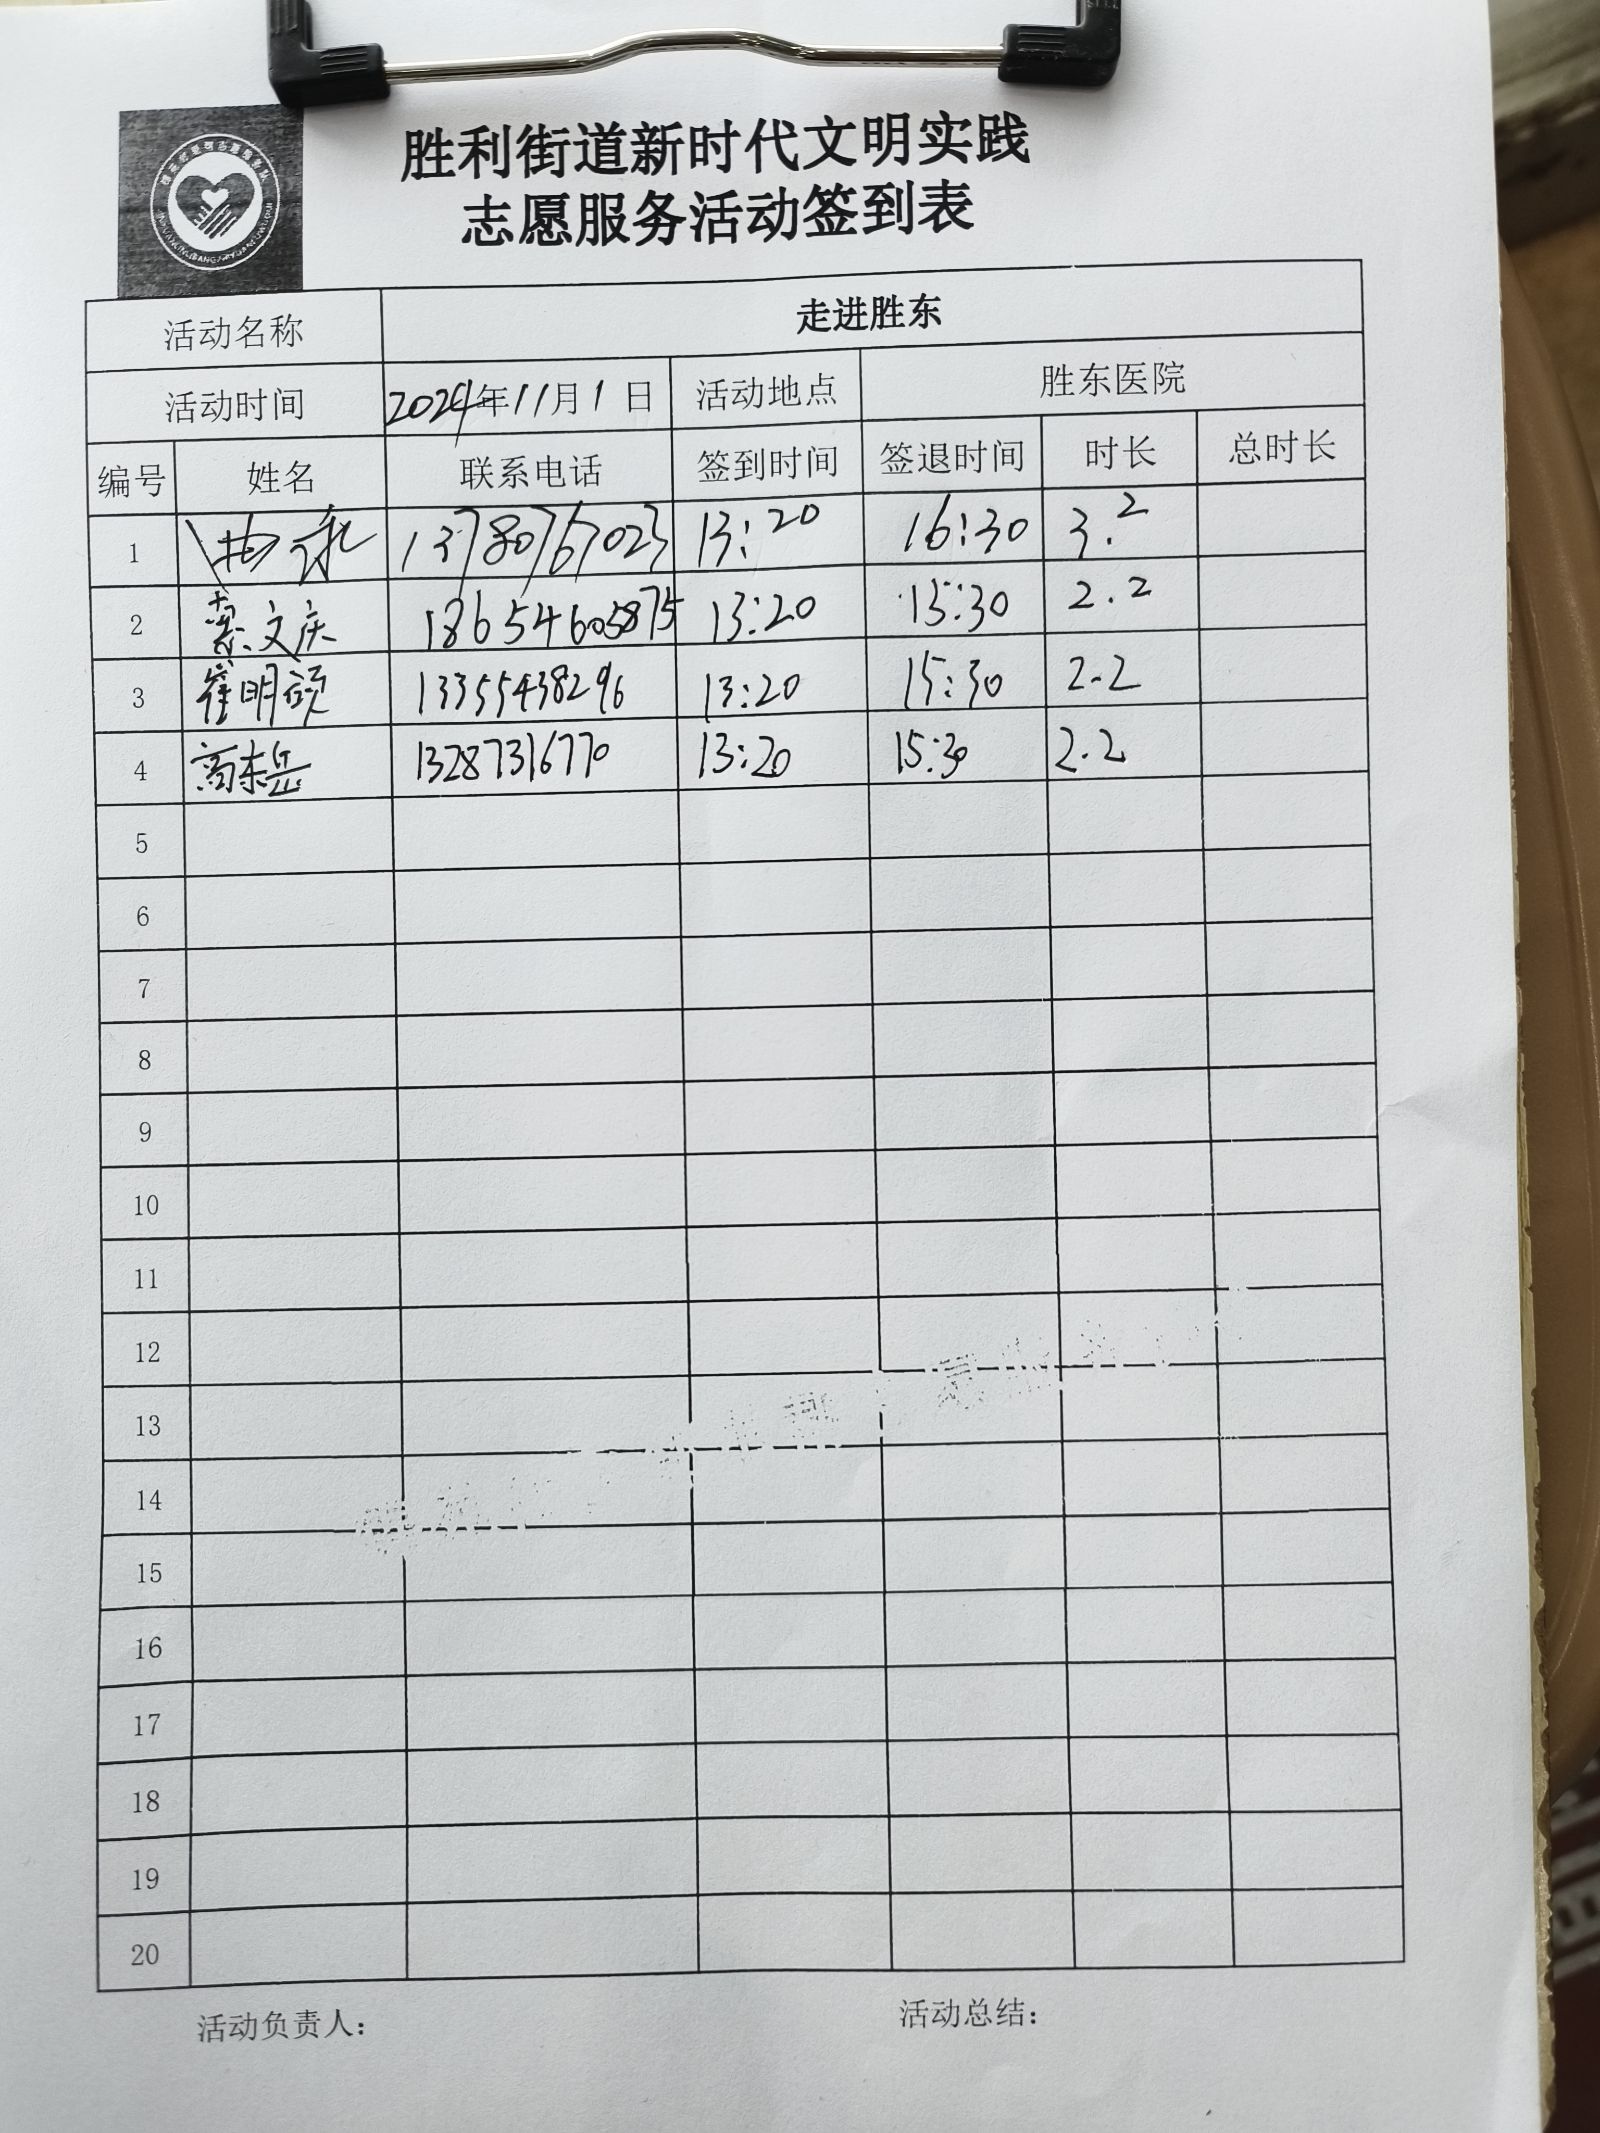 胜利街道新时代文明实践
志愿服务活动签到表
活动名称 走进胜东
活动时间 2024年11月1日 活动地点 胜东医院
编号 姓名 联系电话 签到时间 签退时间 时长 总时长
1 13780767023 13:20 16:30 3.2
2 綦文庆 18654605875 13:20 15:30 2.2
3 崔明硕 13355438296 13:20 15:30 2.2
4 商东岳 13287316770 13:20 15:30 2.2
5
6
7
8
9
10
11
12
13
14
15
16
17
18
19
20
活动负责人: 活动总结: